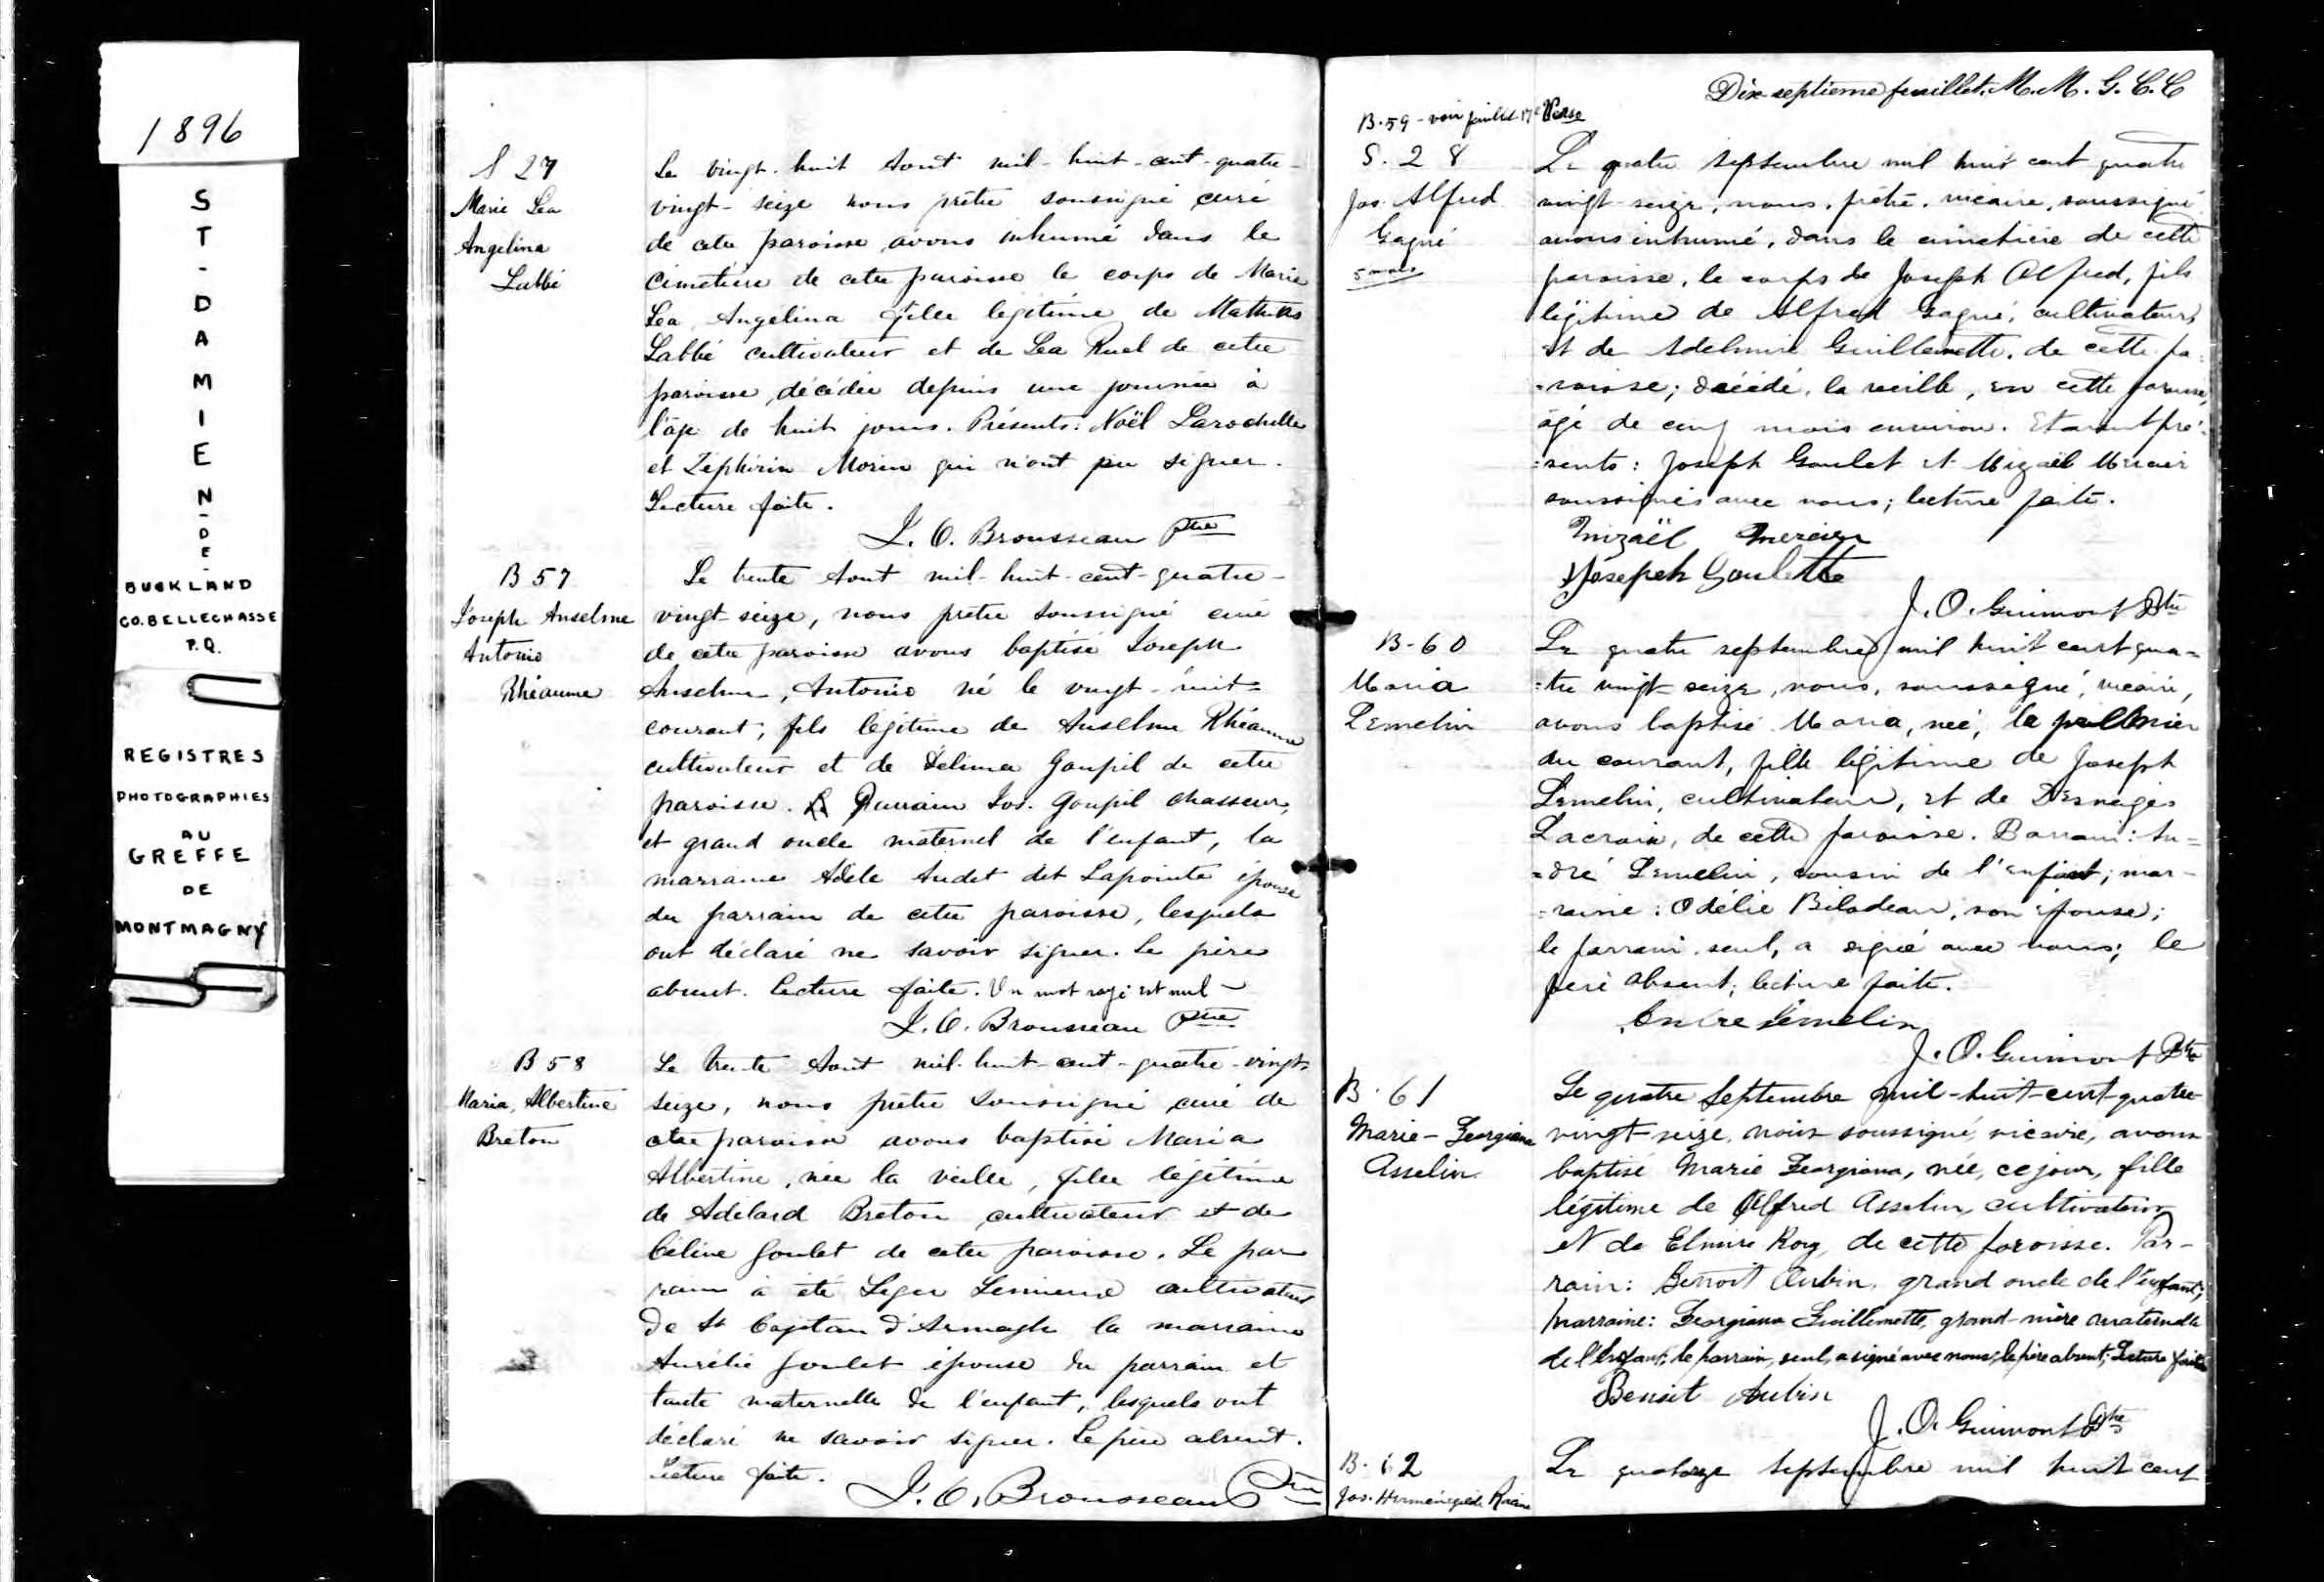 1896
ST-DAMIEN-DE-
BUCKLAND
CO. BELLECHASSE
P.Q.
REGISTRES
PHOTOGRAPHIES
AU
GREFFE
DE
MONTMAGNY
S 27
Marie Lea
Angelina
Labbé
Le vingt-huit Aout mil-huit-cent-quatre-
vingt-seize nous prêtre soussigné curé
de cette paroisse avons inhumé dans le
Cimetière de cette paroisse le corps de Marie
Léa Angélina fille légitime de Mathias
Labbé cultivateur et de Léa Ruel de cette
paroisse, décédée depuis une journée à
l'âge de huit jours. Présents: Noël Larochelle
et Zéphirin Morin qui n'ont pu signer.
Lecture faite.
J. O. Brousseau Ptre
B 57
Joseph Anselme
Antonio
Rhéaume
Le trente Aout mil-huit-cent-quatre-
vingt-seize, nous prêtre soussigné curé
de cette paroisse avons baptisé Joseph
Anselme, Antonio né le vingt-huit
courant, fils légitime de Anselme Rhéaume
cultivateur et de Délima Goupil de cette
paroisse. Parrain Jos. Goupil chasseur,
et grand oncle maternel de l'enfant, la
marraine Adèle Audet dit Lapointe épouse
du parrain de cette paroisse, lesquels
ont déclaré ne savoir signer. Le père
absent. Lecture faite. Un mot rayé est nul
J. O. Brousseau Ptre
B 58
Maria, Albertine
Breton
Le trente Aout mil-huit-cent-quatre-vingt-
seize, nous prêtre soussigné curé de
cette paroisse avons baptisé Maria
Albertine, née la veille, fille légitime
de Adélard Breton cultivateur et de
Céline Goulet de cette paroisse. Le par
rain à été Léger Lemieux cultivateur
de St Cajetan d'Armagh la marraine
Aurélie Goulet épouse du parrain et
tante maternelle de l'enfant, lesquels ont
déclaré ne savoir signer. Le père absent.
Lecture faite.
J. O. Brousseau Ptre
Dix-septième feuillet. M. M. G. C. C
B. 59 - voir feuillet 17e Verso
S. 28
Jos. Alfred
Gagné
5 mois
Le quatre septembre mil huit cent quatre
vingt-seize, nous, prêtre, vicaire, soussigné
avons inhumé, dans le cimetière de cette
paroisse, le corps de Joseph Alfred, fils
légitime de Alfred Gagné, cultivateur,
et de Adelmire Guillemette, de cette pa=
=roisse; décédé, la veille, en cette paroisse,
âgé de cinq mois environ. Etaient pré=
=sents: Joseph Goulet et Mizaël Mercier
soussignés avec nous; lecture faite.
Mizaël Mercier
Joseph Goulette
J. O. Guimont Ptre
B-60
Maria
Lemelin
Le quatre septembre mil huit cent qua=
=tre vingt seize, nous, soussigné, vicaire,
avons baptisé Maria, née, le premier
du courant, fille légitime de Joseph
Lemelin, cultivateur, et de Desneiges
Lacroix, de cette paroisse. Parrain: An=
=dré Lemelin, cousin de l'enfant; mar-
=raine: Odélie Bilodeau, son épouse;
le parrain, seul, a signé avec nous; le
père absent; lecture faite.
Andre Lemelin
J. O. Guimont Ptre
B. 61
Marie-Georgiana
Asselin
Le quatre Septembre mil-huit-cent-quatre
vingt-seize, nous soussigné, vicaire, avons
baptisé Marie Georgiana, née, ce jour, fille
légitime de Alfred Asselin, cultivateur
et de Elmire Roy, de cette paroisse. Par-
rain: Benoit Aubin, grand oncle de l'enfant;
Marraine: Georgiana Guillemette, grand-mère maternelle
de l'enfant; le parrain, seul, a signé avec nous; le père absent; Lecture faite
Benoit Aubin
J. O. Guimont Ptre
B. 62
Jos. Herménégilde Racine
Le quatorze septembre mil huit cent